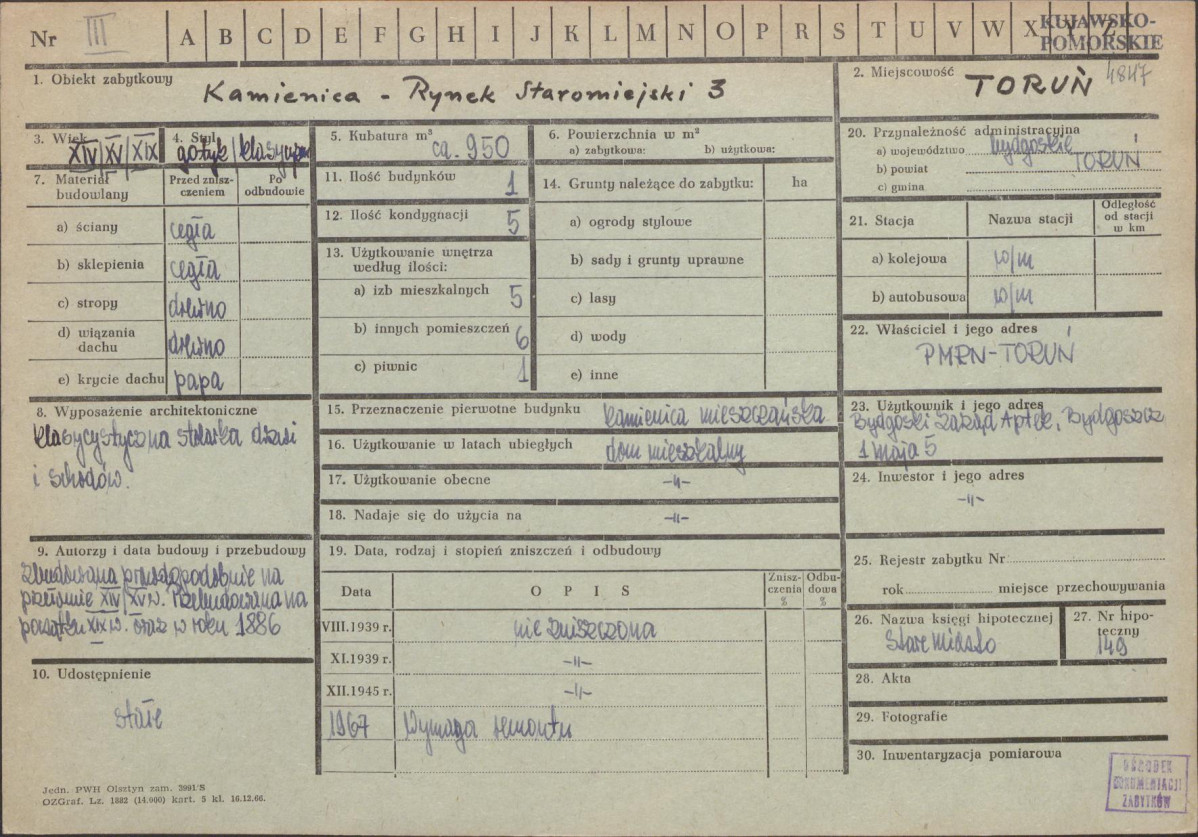 Nr III A B C D E F G H I J K L M N O P R S T U V W X Y Z KUJAWSKO-
POMORSKIE
1. Obiekt zabytkowy
Kamienica - Rynek Staromiejski 3
2. Miejscowość
TORUŃ 4847
3. Wiek
XIV/XV/XIX
4. Styl
gotyk/klasycyzm
5. Kubatura m³
ca. 950
6. Powierzchnia w m²
a) zabytkowa: b) użytkowa:
7. Materiał
budowlany
Przed znisz-
czeniem
Po
odbudowie
a) ściany cegła
b) sklepienia cegła
c) stropy drewno
d) wiązania
dachu drewno
e) krycie dachu papa
11. Ilość budynków 1
12. Ilość kondygnacji 5
13. Użytkowanie wnętrza
według ilości:
a) izb mieszkalnych 5
b) innych pomieszczeń 6
c) piwnic 1
14. Grunty należące do zabytku: ha
a) ogrody stylowe
b) sady i grunty uprawne
c) lasy
d) wody
e) inne
20. Przynależność administracyjna
a) województwo bydgoskie
b) powiat TORUŃ
c) gmina
21. Stacja Nazwa stacji
Odległość
od stacji
w km
a) kolejowa w/m
b) autobusowa w/m
22. Właściciel i jego adres
PMRN-TORUŃ
8. Wyposażenie architektoniczne
klasycystyczna stolarka drzwi
i schodów.
15. Przeznaczenie pierwotne budynku kamienica mieszczańska
16. Użytkowanie w latach ubiegłych dom mieszkalny
17. Użytkowanie obecne -"-
18. Nadaje się do użycia na -"-
23. Użytkownik i jego adres
Bydgoski Zarząd Aptek, Bydgoszcz
1 maja 5
24. Inwestor i jego adres
-"-
9. Autorzy i data budowy i przebudowy
Zbudowana prawdopodobnie na
przełomie XIV/XV w. Przebudowana na
początku XIX w. oraz w roku 1886
10. Udostępnienie
stałe
19. Data, rodzaj i stopień zniszczeń i odbudowy
Data OPIS
Znisz-
czenia
%
Odbu-
dowa
%
VIII.1939 r. nie zniszczona
XI.1939 r. -"-
XII.1945 r. -"-
1967 Wymaga remontu
25. Rejestr zabytku Nr
rok miejsce przechowywania
26. Nazwa księgi hipotecznej
Stare Miasto
27. Nr hipo-
teczny
149
28. Akta
29. Fotografie
30. Inwentaryzacja pomiarowa
OŚRODEK
DOKUMENTACJI
ZABYTKÓW
Jedn. PWH Olsztyn zam. 3991'S
OZGraf. Lz. 1882 (14.000) kart. 5 kl. 16.12.66.